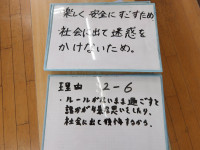 楽しく安全にすごすため
社会に出て迷惑を
かけないため。
理由 2-6
・ルールがないまま過ごすと
誰かが嫌な思いをしたり、
社会に出て後悔するから。